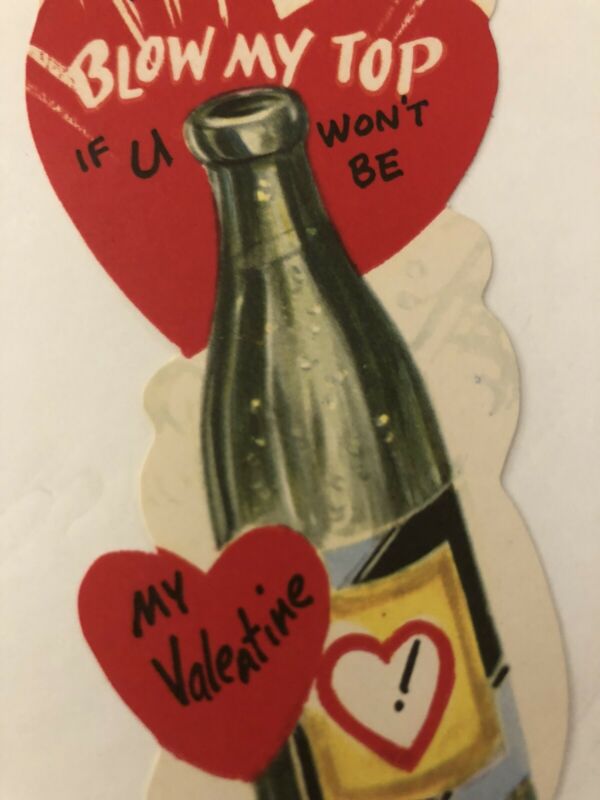 BLOW MY TOP
IF U WON'T
BE
MY
Valentine
!